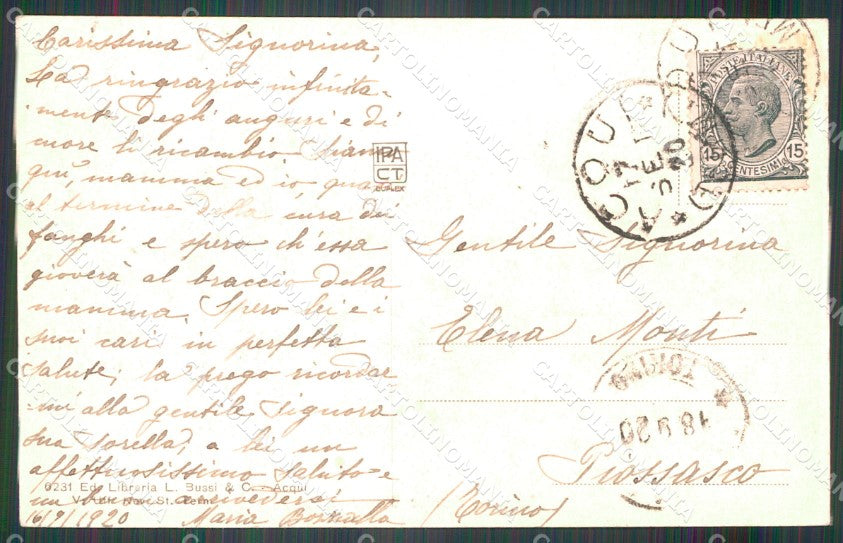 Carissima Signorina,
La ringrazio infinita-
mente degli auguri e di
cuore li ricambio. Siamo
qui, mamma ed io, quasi
al termine della cura dei
fanghi e spero ch'essa
gioverà al braccio della
mamma. Spero lei e i
suoi cari in perfetta
salute; la prego ricordar
mi alla gentile Signora
sua sorella, a lei un
affettuosissimo saluto e
un buon arrivederci
16/9/1920 Maria
6231 Ed. Libraria L. Bussi & C. - Acqui
IPA
C.T.
DUPLEX
POSTE ITALIANE
15 15
CENTESIMI
ACQUI
17 SET
20
Gentile Signorina
Elena Monti
TORINO
18 9 20
Piossasco
(Torino)
CARTOLINOMANIA